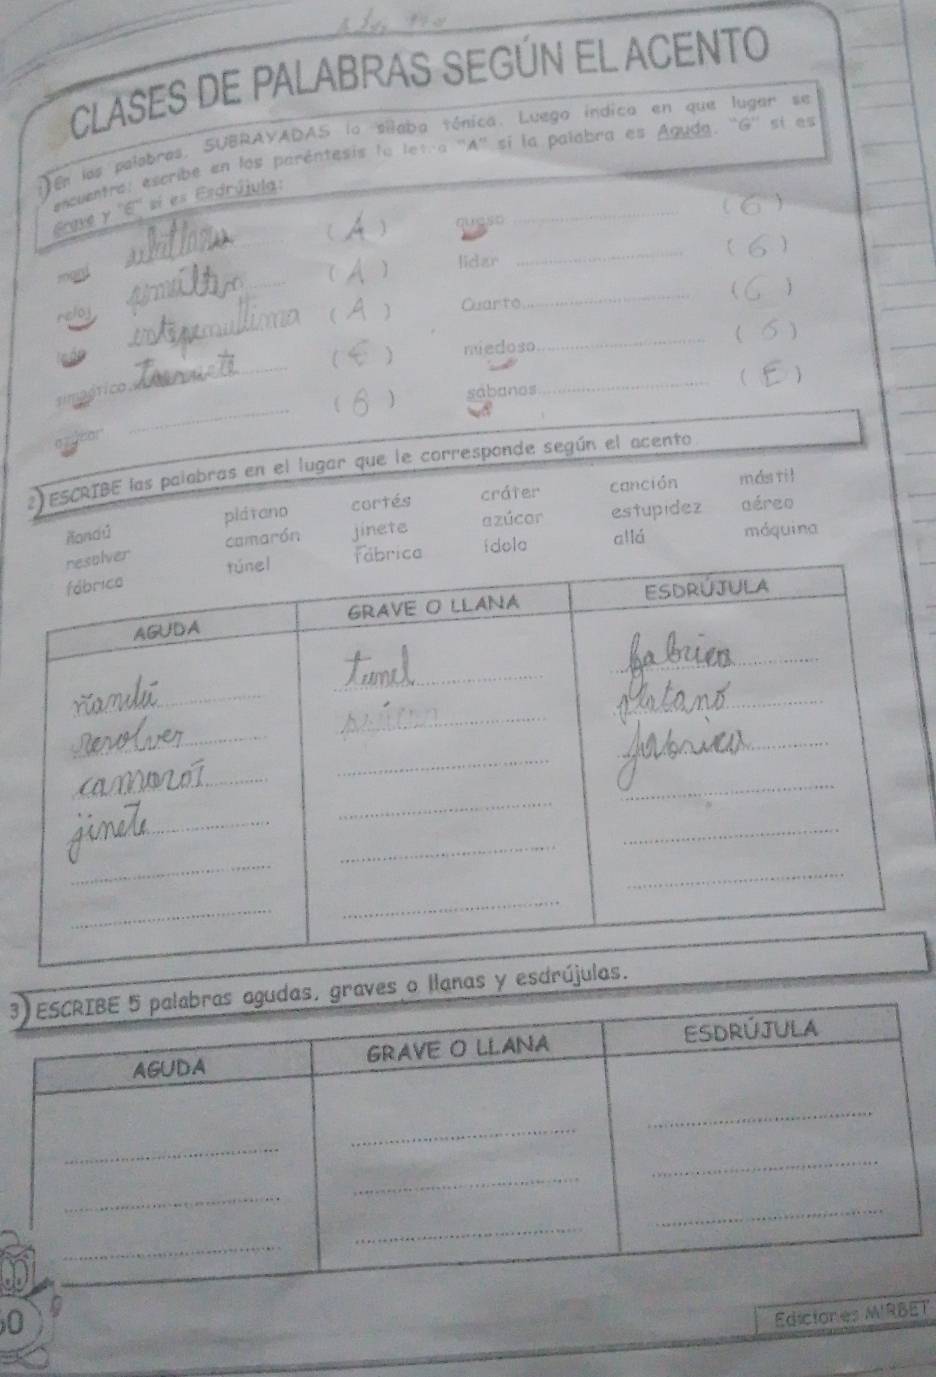 CLASES DE PALABRAS SEGÚN EL ACENTO
1) En las palabras, SUBRAYADAS la sílaba tónica. Luego indica en que lugar se
encuentra; escribe en los paréntesis la letra "A" si la palabra es Aguda. "G" si es
Grave y "E" si es Esdrújula:
( A ) queso ( G )
reloj ( A ) líder ( G )
( A ) Cuarto ( G )
simpático ( E ) miedoso ( G )
azúcar ( G ) sábanas ( E )
2) ESCRIBE las palabras en el lugar que le corresponde según el acento
ñandú plátano cortés cráter canción mástil
resolver camarón jinete azúcar estupidez aéreo
fábrica túnel Fábrica ídolo allá máquina
AGUDA GRAVE O LLANA ESDRÚJULA
tunel
resolver platano
jinete
3) ESCRIBE 5 palabras agudas, graves o llanas y esdrújulas.
AGUDA GRAVE O LLANA ESDRÚJULA
Ediciones MIRBET